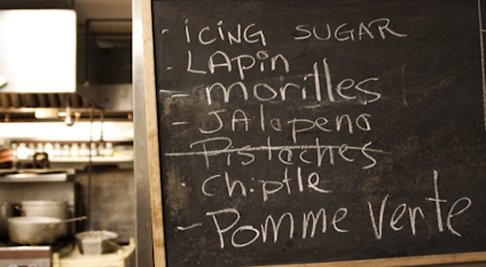 - iCiNG SUGAR
- LAPin
- morilles
- JAlapeno
Pistaches
- Chiptle
- Pomme Verte